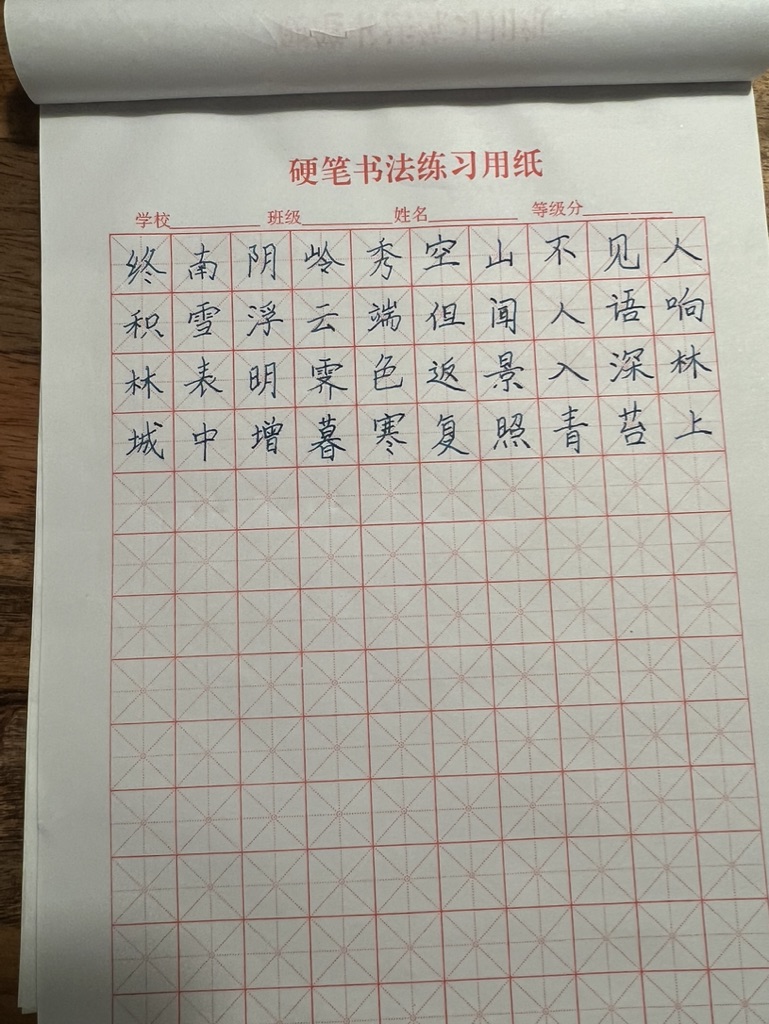 硬笔书法练习用纸
学校 班级 姓名 等级分
终南阴岭秀空山不见人
积雪浮云端但闻人语响
林表明霁色返景入深林
城中增暮寒复照青苔上